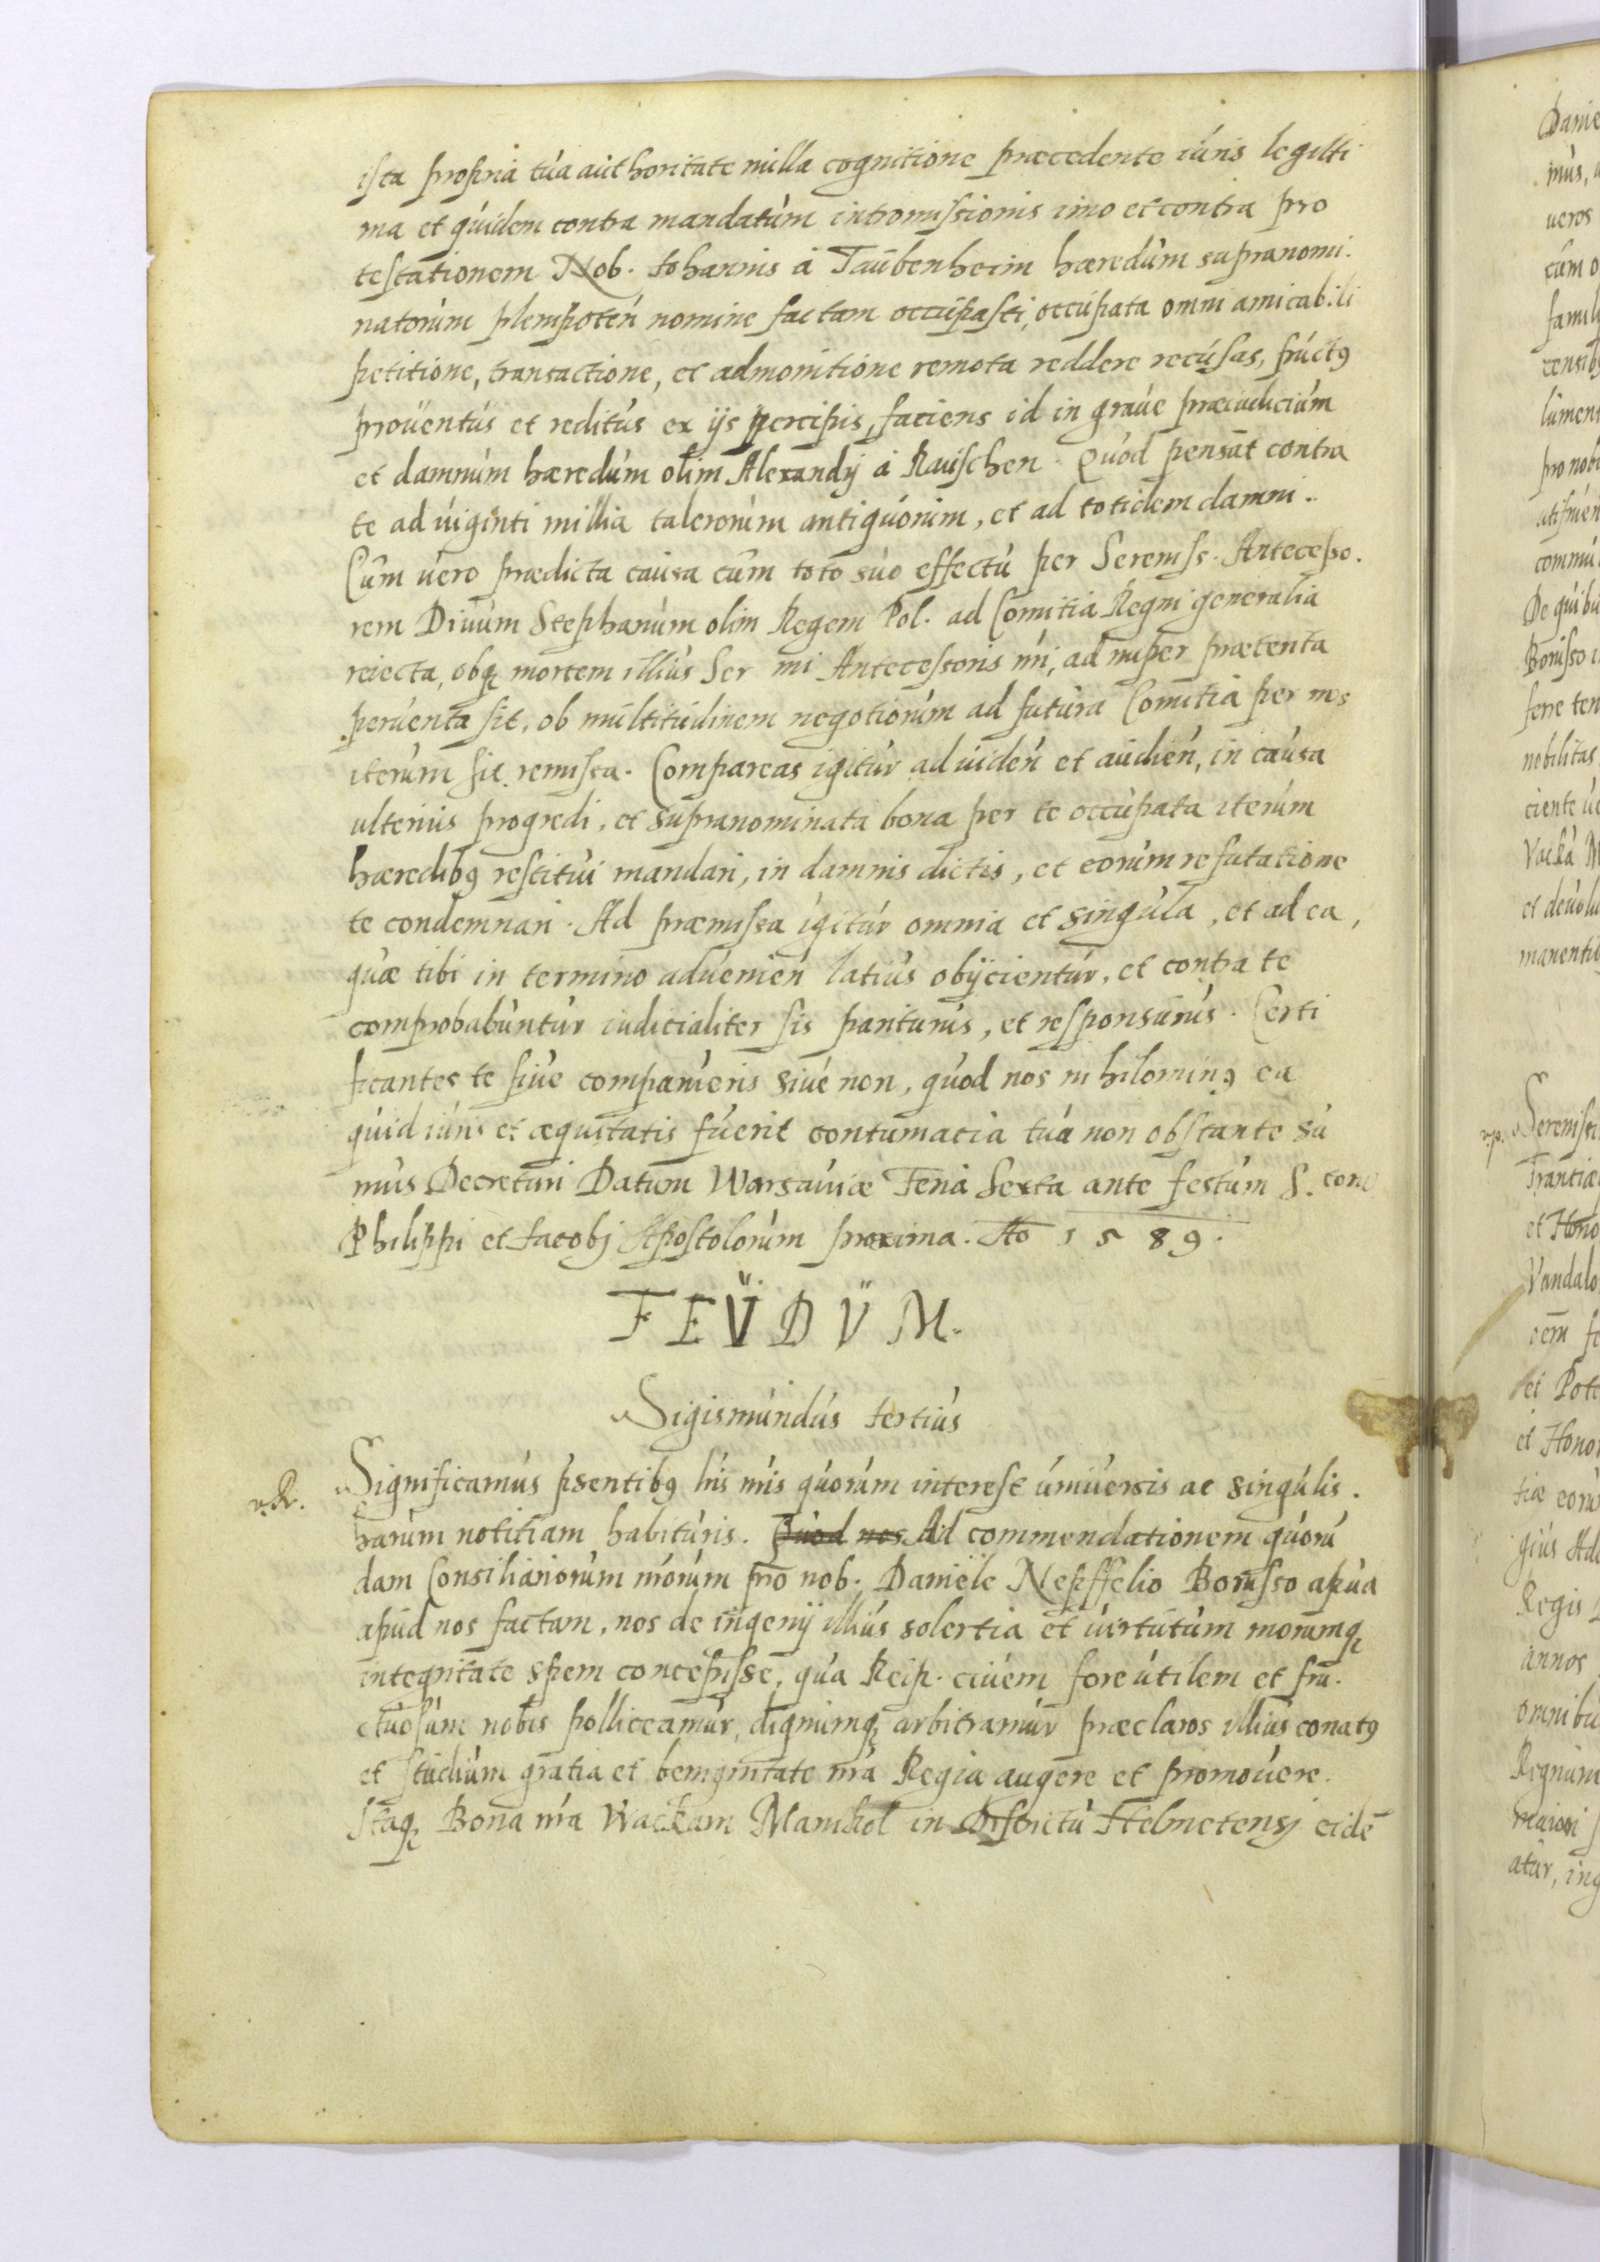 ista propria tua authoritate nulla cognitione præcedente iuris legitti
ma et quidem contra mandatum intromissionis imo et contra pro
testationem Nob. Johannis á Taubenheim hæredum supranomi.
natorum plenipoten nomine factam occupasti, occupata omni amicabili
petitione, transactione, et admonitione remota reddere recusas, fructus
proventus et reditus ex ijs percipis, faciens id in graue præiudicium
et damnum hæredum olim Alexandij á Rauschen. Quod pensat contra
te ad uiginti millia talerorum antiquorum, et ad totidem damni.
Cum uero prædicta causa cum toto suo effectu per Sereniss. Antecesso.
rem Diuum Stephanum olim Regem Pol. ad Comitia Regni generalia
reiecta, obq mortem illius Ser mi Antecessoris nri, ad nuper prætenta
peruenta sit, ob multitudinem negotiorum ad futura Comitia per nos
iterum sit remissa. Compareas igitur ad uiden et audien, in causa
ulterius progredi, et supranominata bona per te occupata iterum
hæredibus restitui mandari, in damnis dictis, et eorum refutatione
te condemnari. Ad præmissa igitur omnia et singula, et ad ea,
quæ tibi in termino aduenien latius obijcientur, et contra te
comprobabuntur iudicialiter sis pariturus, et responsurus. Certi
ficantes te siue comparueris siue non, quod nos nihilominus ea
quid iuris et æquitatis fuerit contumacia tua non obstante su
mus Decreturi Datum Warsauiæ Feria Sexta ante festum S. torum
Philippi et Jacobj Apostolorum proxima. Ao 1589.
FEVDVM.
Sigismundus tertius
Significamus psentibus lris nris quorum interest uniuersis ac singulis.
harum notitiam habituris. Quod nos Ad commendationem quoru
dam Consiliariorum nrorum pro nob. Daniele Nepffelio Borusso apua
apud nos factam, nos de ingenij illius solertia et uirtutum morumq
integritate spem concepisse, qua Reip. ciuem fore utilem et fru.
ctuosum nobis polliceamur, dignumq arbitramur præclaros illius conatus
et studium gratia et benignitate nra Regia augere et promouere.
Itaq Bona nra Wackam Manckel in Districtu Helmetensj eide